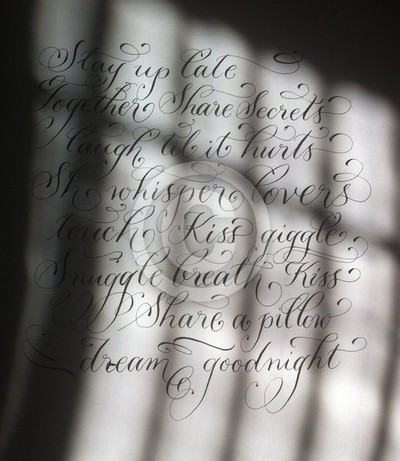 Stay up late
Together Share Secrets
laugh til it hurts
Sh whisper lovers
touch Kiss giggle
Snuggle breath Kiss
Share a pillow
dream goodnight